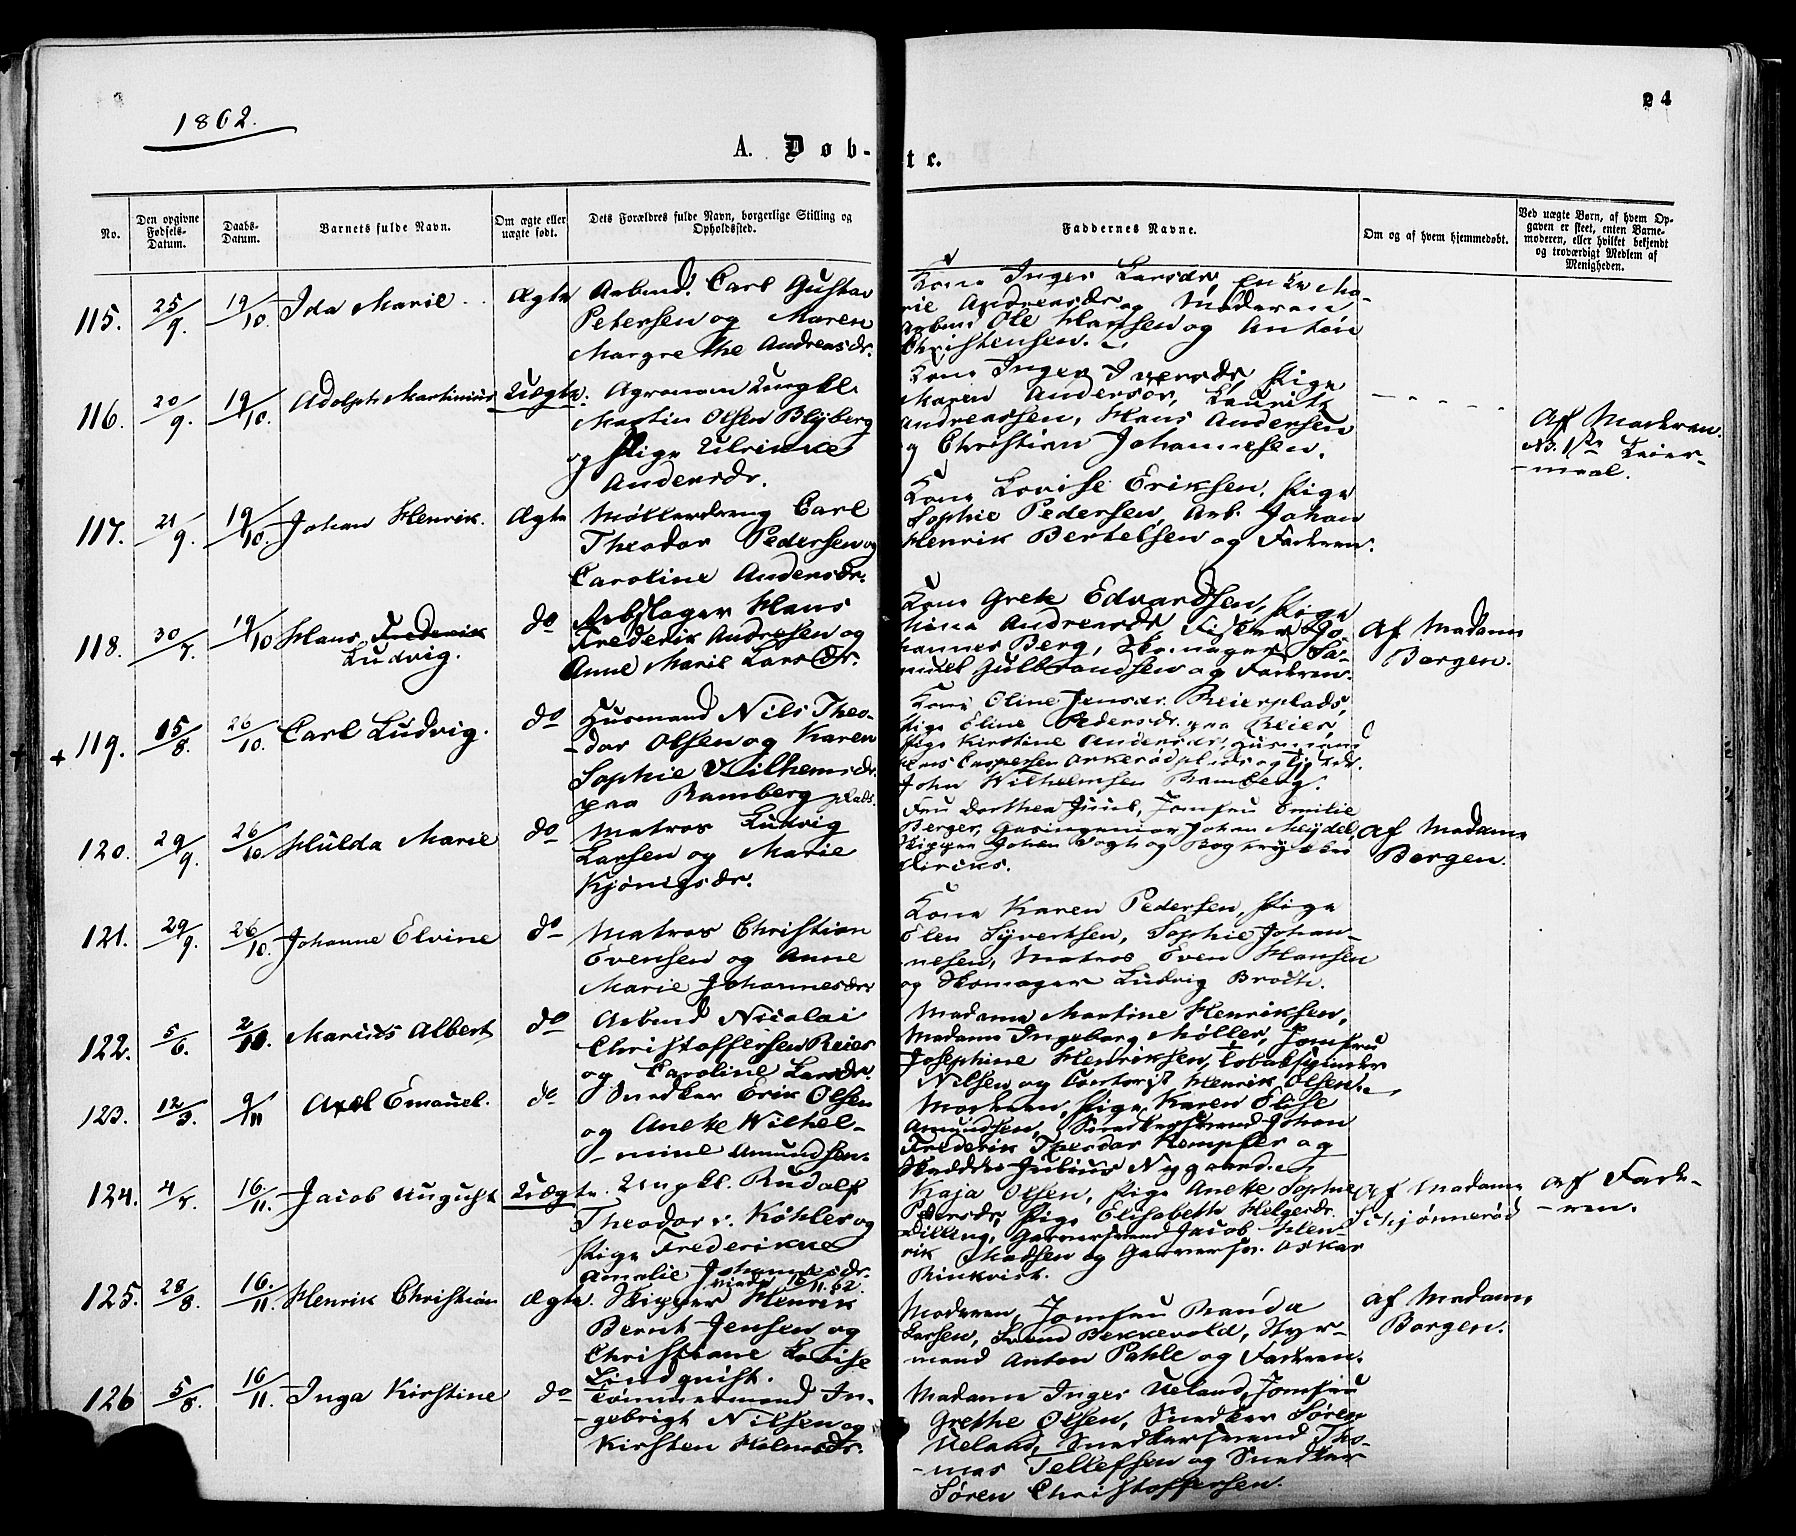 1862.
24
A. Døb-
te.
No.
Den opgivne Fødsels-Datum.
Daabs-Datum.
Barnets fulde Navn.
Om ægte eller uægte født.
Dets Forældres fulde Navn, borgerlige Stilling og Opholdssted.
Faddernes Navne.
Om og af hvem hjemmedøbt.
Ved uægte Børn, af hvem Op-
gaven er skeet, enten Barne-
moderen, eller hvilket bekjendt
og troværdigt Medlem af
Menigheden.
115. 25/9. 19/10. Ida Marie. Ægte
Arbmd. Carl Gustav
Petersen og Maren
Margrethe Andreasdr.
Kone Inger Larsdr, Enke Ma-
rie Andreasdr og Moderen
Arbmd Ole Hansen og Anton
Christensen.
116. 20/9. 19/10. Adolph Martinius Uægte.
Agronom Ungkl.
Martin Olsen Blyberg
og Pige Ulrikke
Andersdr.
Kone Inger Iversdr, Pige
Maren Andersdr, Laurits
Andreassen, Hans Andersen
og Christian Johannesen.
Af Moderen.
NB. 1ste Leier-
-maal.
117. 21/9. 19/10. Johan Henrik. Ægte
Møllerdreng Carl
Theodor Pedersen og
Caroline Andersdr.
Kone Lovise Eriksen, Pige
Sophie Pedersen, Arb. Johan
Henrik Bertelsen og Faderen.
118. 30/7. 19/10 Hans Frederik
Ludvig. do
Hans
Frederik Andresen og
Anne Marie Larsdr.
Kone Grete Edvardsen, Pige
Mina Andreasdr, Fisker Jo-
hannes Berg, Skomager Sa-
muel Gulbrandsen og Faderen.
Af Madam
Borgen.
+ 119. 15/8. 26/10. Carl Ludvig. do
Husmand Nils Theo-
-dor Olsen og Karen
Sophie Wilhelmsdr.
paa Ramberg plads.
Kone Oline Jensdr. Reierplads,
Pige Eline Pedersdr. paa Reier,
Pige Kirstine Andersdr, Husmand
Hans Caspersen Ankerød plads og
John Wilhelmsen Ramberg.
120. 29/9. 26/10 Hulda Marie do
Matros Ludvig
Larsen og Marie
Kjønigsdr.
Fru Dorthea Juul, Jomfru Emilie
Berger, Gasingeniør Johan Meydel,
Skipper Johan Vogt og Bogtrykker
Diriks.
Af Madam
Borgen.
121. 29/9. 26/10. Johanne Elvine do
Matros Christian
Evensen og Anne
Marie Johannesdr
Kone Karen Pedersen, Pige
Elen Syvertsen, Sophie Johan-
-nesen, Matros Even Hansen
og Skomager Ludvig Broth.
122. 5/6. 2/11. Marius Albert do
Arbmd Nicolai
Christoffersen Reier
og Caroline Larsdr.
Madam Martine Henriksen,
Madam Ingeborg Møller, Jomfru
Josephine Henriksen, Tobakspinder
Nilsen og Contorist Henrik Olsen.
123. 12/3. 9/11 Axel Emanuel. do
Snedker Erik Olsen
og Anette Wilhel-
-mine Amundsen.
Moderen, Pige Karen Elise
Amundsen, Snedkersvend Johan
Frederik Theodor Kempfer og
Skrædder Julius Nygaard.
124. 4/7. 16/11. Jacob August Uægte.
Ungkl. Rudolf
Theodor v. Køhler og
Pige Frederikke
Amalie Johannesdr.
Kaja Olsen, Pige Anette Sophie
Pedersdr, Pige Elisabeth Helgesdr.
Dilling, Garversvend Jacob Hen-
rik Madsen og Garversv. Oskar
Rinkvist.
Af Madam
Af Fade-
-ren.
125. 28/8. 16/11. Henrik Christian Ægte.
viede 16/11.62.
Skipper Henrik
Bernt Jensen og
Christiane Lovise
Lindqvist.
Moderen, Jomfru Randa
Larsen, Svend Bekkevold, Styr-
mand Anton Pahle og Faderen.
Af Madam
Borgen.
126 5/8. 16/11. Inga Kirstine do
Tømmermand In-
-gebrigt Nilsen og
Kirsten Holmsdr.
Madam Inger Ueland, Jomfru
Grethe Olsen, Snedker Søren
Ueland, Snedkersvend Tho-
-mas Tellefsen og Snedker
Søren Christoffersen.